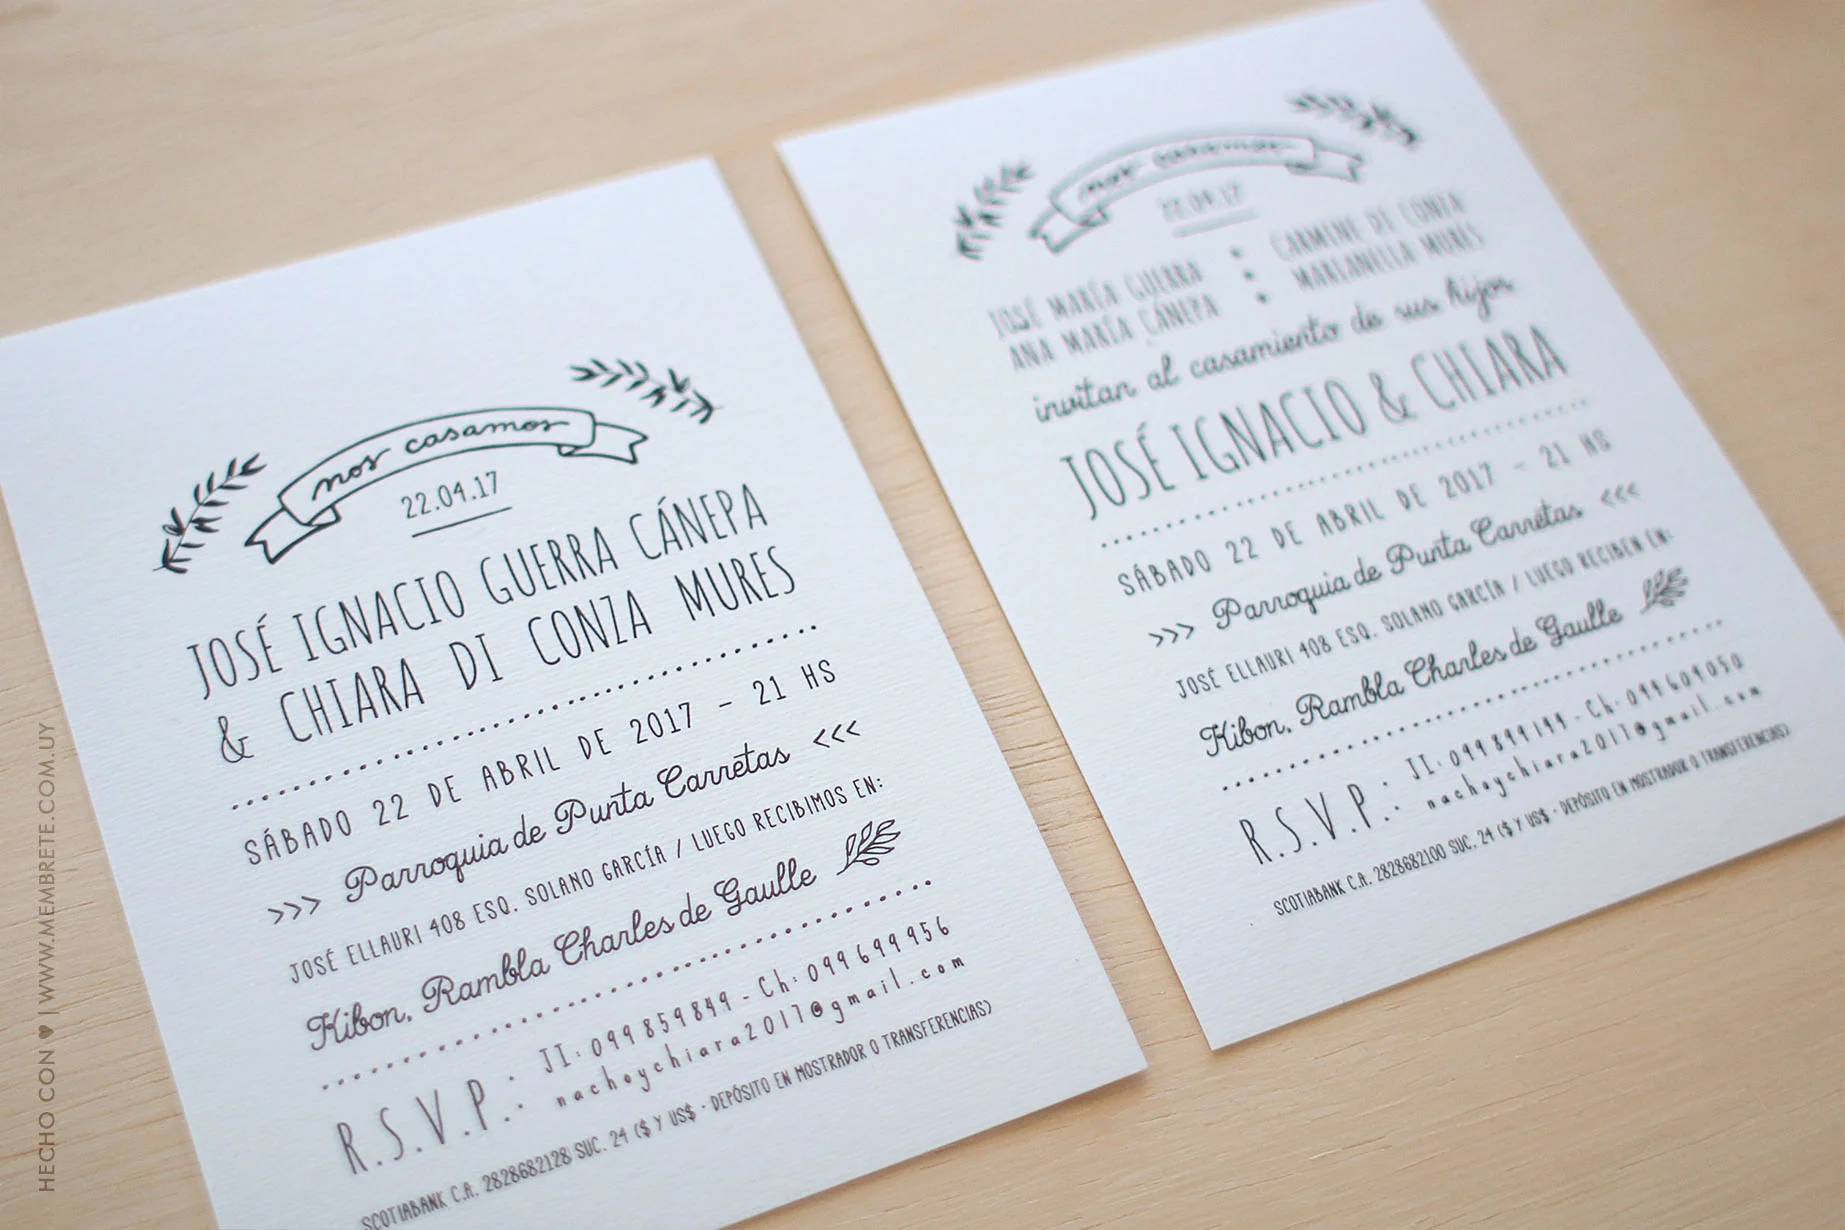 nos casamos
22.04.17
JOSÉ IGNACIO GUERRA CÁNEPA
& CHIARA DI CONZA MURES
SÁBADO 22 DE ABRIL DE 2017 - 21 HS
>>> Parroquia de Punta Carretas <<<
JOSÉ ELLAURI 408 ESQ. SOLANO GARCÍA / LUEGO RECIBIMOS EN:
Kibon, Rambla Charles de Gaulle
R.S.V.P.: JI: 099 859 849 - Ch: 099 699 956
nachoychiara2017@gmail.com
SCOTIABANK C.A. 2828682128 SUC. 24 ($ Y US$ - DEPÓSITO EN MOSTRADOR O TRANSFERENCIAS)
nos casamos
22.04.17
JOSÉ MARÍA GUERRA
ANA MARÍA CÁNEPA
CARMINE DI CONZA
MARIANELLA MURES
invitan al casamiento de sus hijos
JOSÉ IGNACIO & CHIARA
SÁBADO 22 DE ABRIL DE 2017 - 21 HS
>>> Parroquia de Punta Carretas <<<
JOSÉ ELLAURI 408 ESQ. SOLANO GARCÍA / LUEGO RECIBEN EN:
Kibon, Rambla Charles de Gaulle
R.S.V.P.: JI: 099 899 199 - Ch: 099 609 050
nachoychiara2017@gmail.com
SCOTIABANK C.A. 2828682100 SUC. 24 ($ Y US$ - DEPÓSITO EN MOSTRADOR O TRANSFERENCIAS)
HECHO CON ♥ | WWW.MEMBRETE.COM.UY